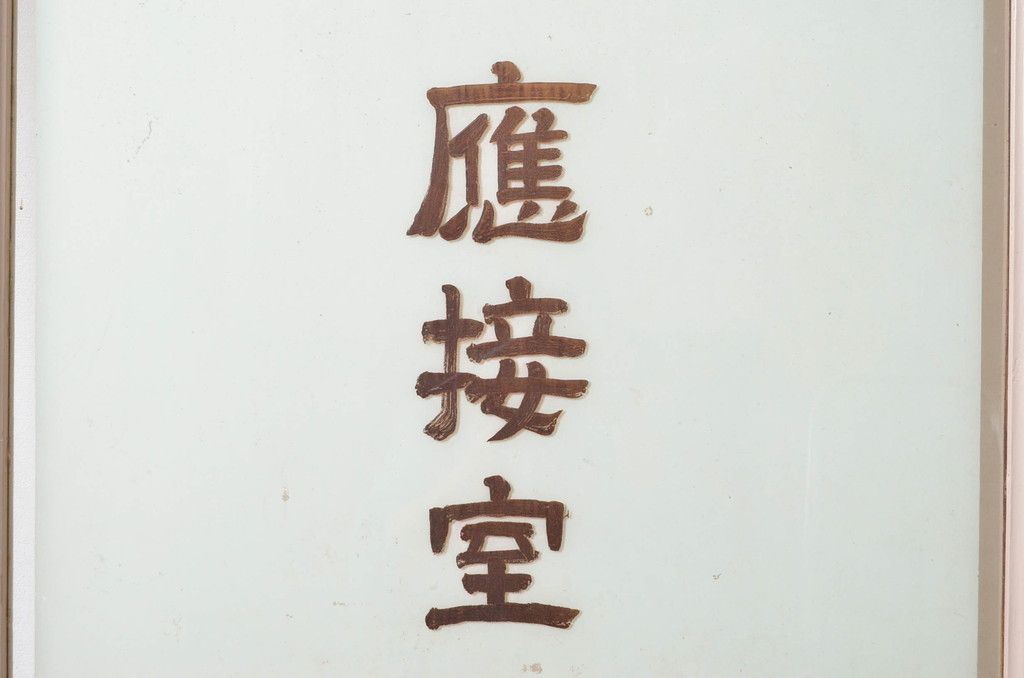 應接室